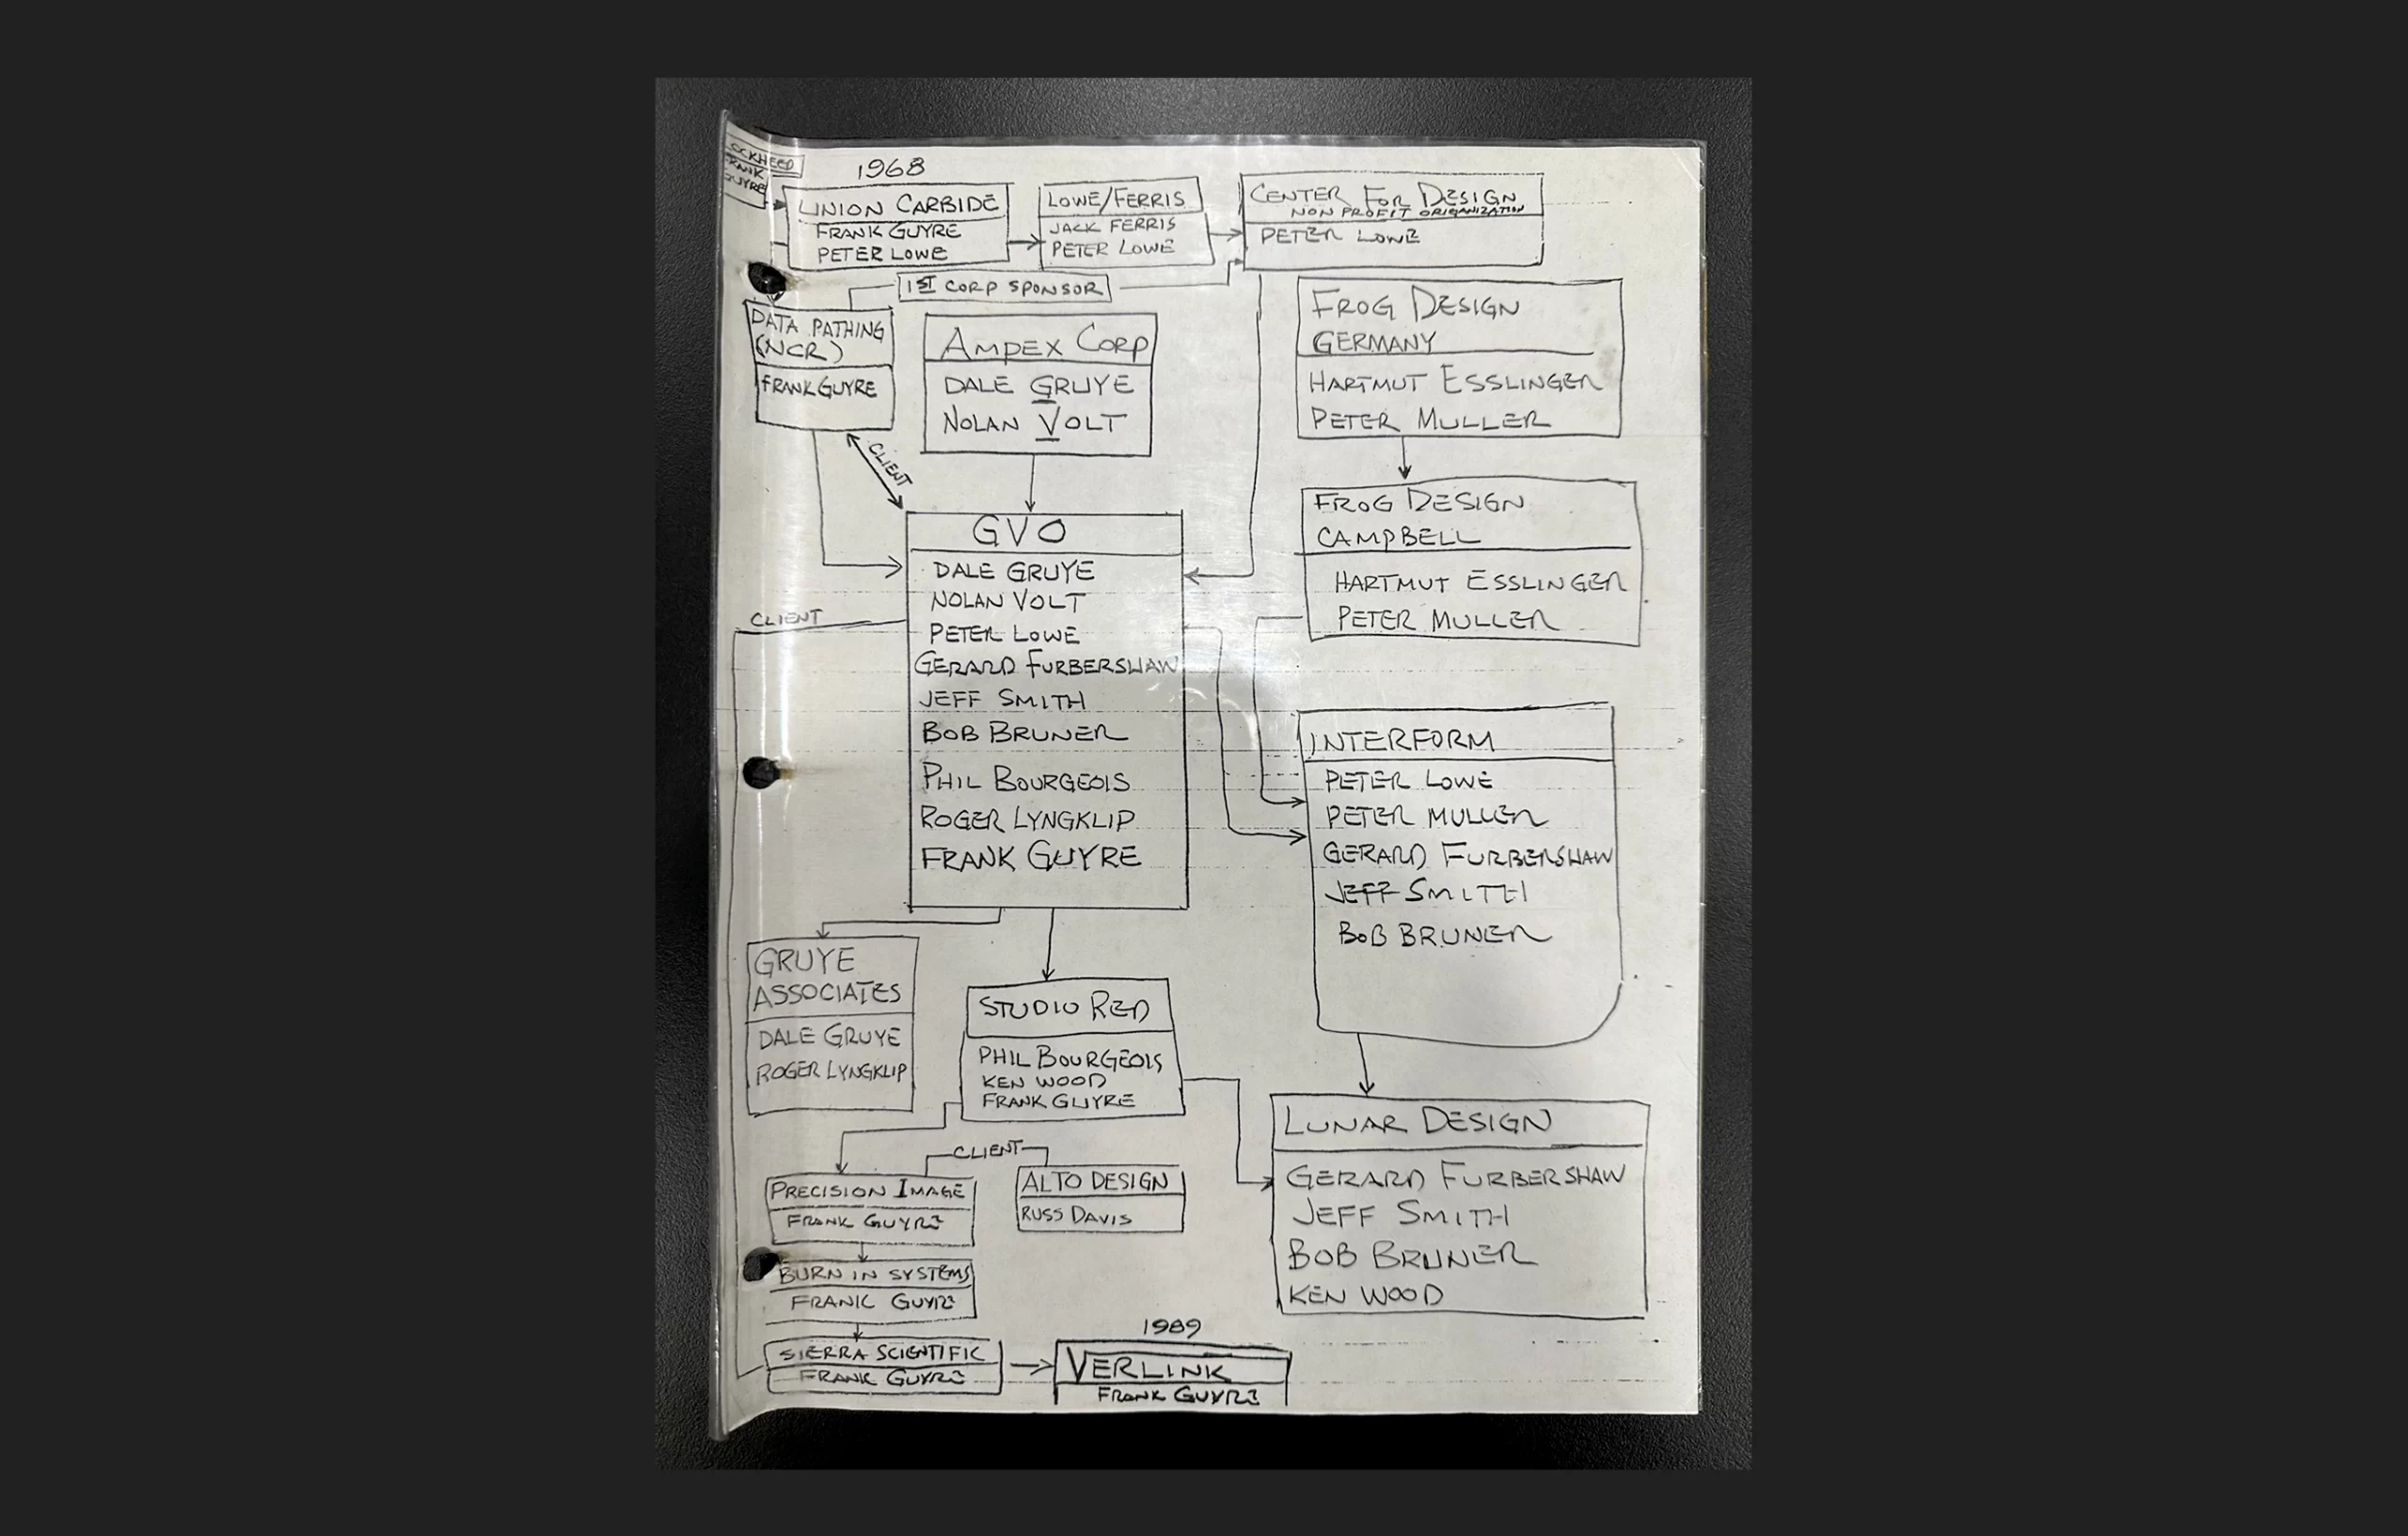 LOCKHEED
FRANK
GUYRE
1968
UNION CARBIDE
FRANK GUYRE
PETER LOWE
LOWE/FERRIS
JACK FERRIS
PETER LOWE
CENTER FOR DESIGN
NON PROFIT ORIGANIZATION
PETER LOWE
1ST CORP SPONSOR
DATA PATHING
(NCR)
FRANK GUYRE
AMPEX CORP
DALE GRUYE
NOLAN VOLT
FROG DESIGN
GERMANY
HARTMUT ESSLINGER
PETER MULLER
CLIENT
FROG DESIGN
CAMPBELL
HARTMUT ESSLINGER
PETER MULLER
GVO
DALE GRUYE
NOLAN VOLT
PETER LOWE
GERARD FURBERSHAW
JEFF SMITH
BOB BRUNER
PHIL BOURGEOIS
ROGER LYNGKLIP
FRANK GUYRE
CLIENT
INTERFORM
PETER LOWE
PETER MULLER
GERARD FURBERSHAW
JEFF SMITH
BOB BRUNER
GRUYE
ASSOCIATES
DALE GRUYE
ROGER LYNGKLIP
STUDIO RED
PHIL BOURGEOIS
KEN WOOD
FRANK GUYRE
LUNAR DESIGN
GERARD FURBERSHAW
JEFF SMITH
BOB BRUNER
KEN WOOD
CLIENT
PRECISION IMAGE
FRANK GUYRE
ALTO DESIGN
RUSS DAVIS
BURN IN SYSTEMS
FRANK GUYRE
SIERRA SCIENTIFIC
FRANK GUYRE
1989
VERLINK
FRANK GUYRE